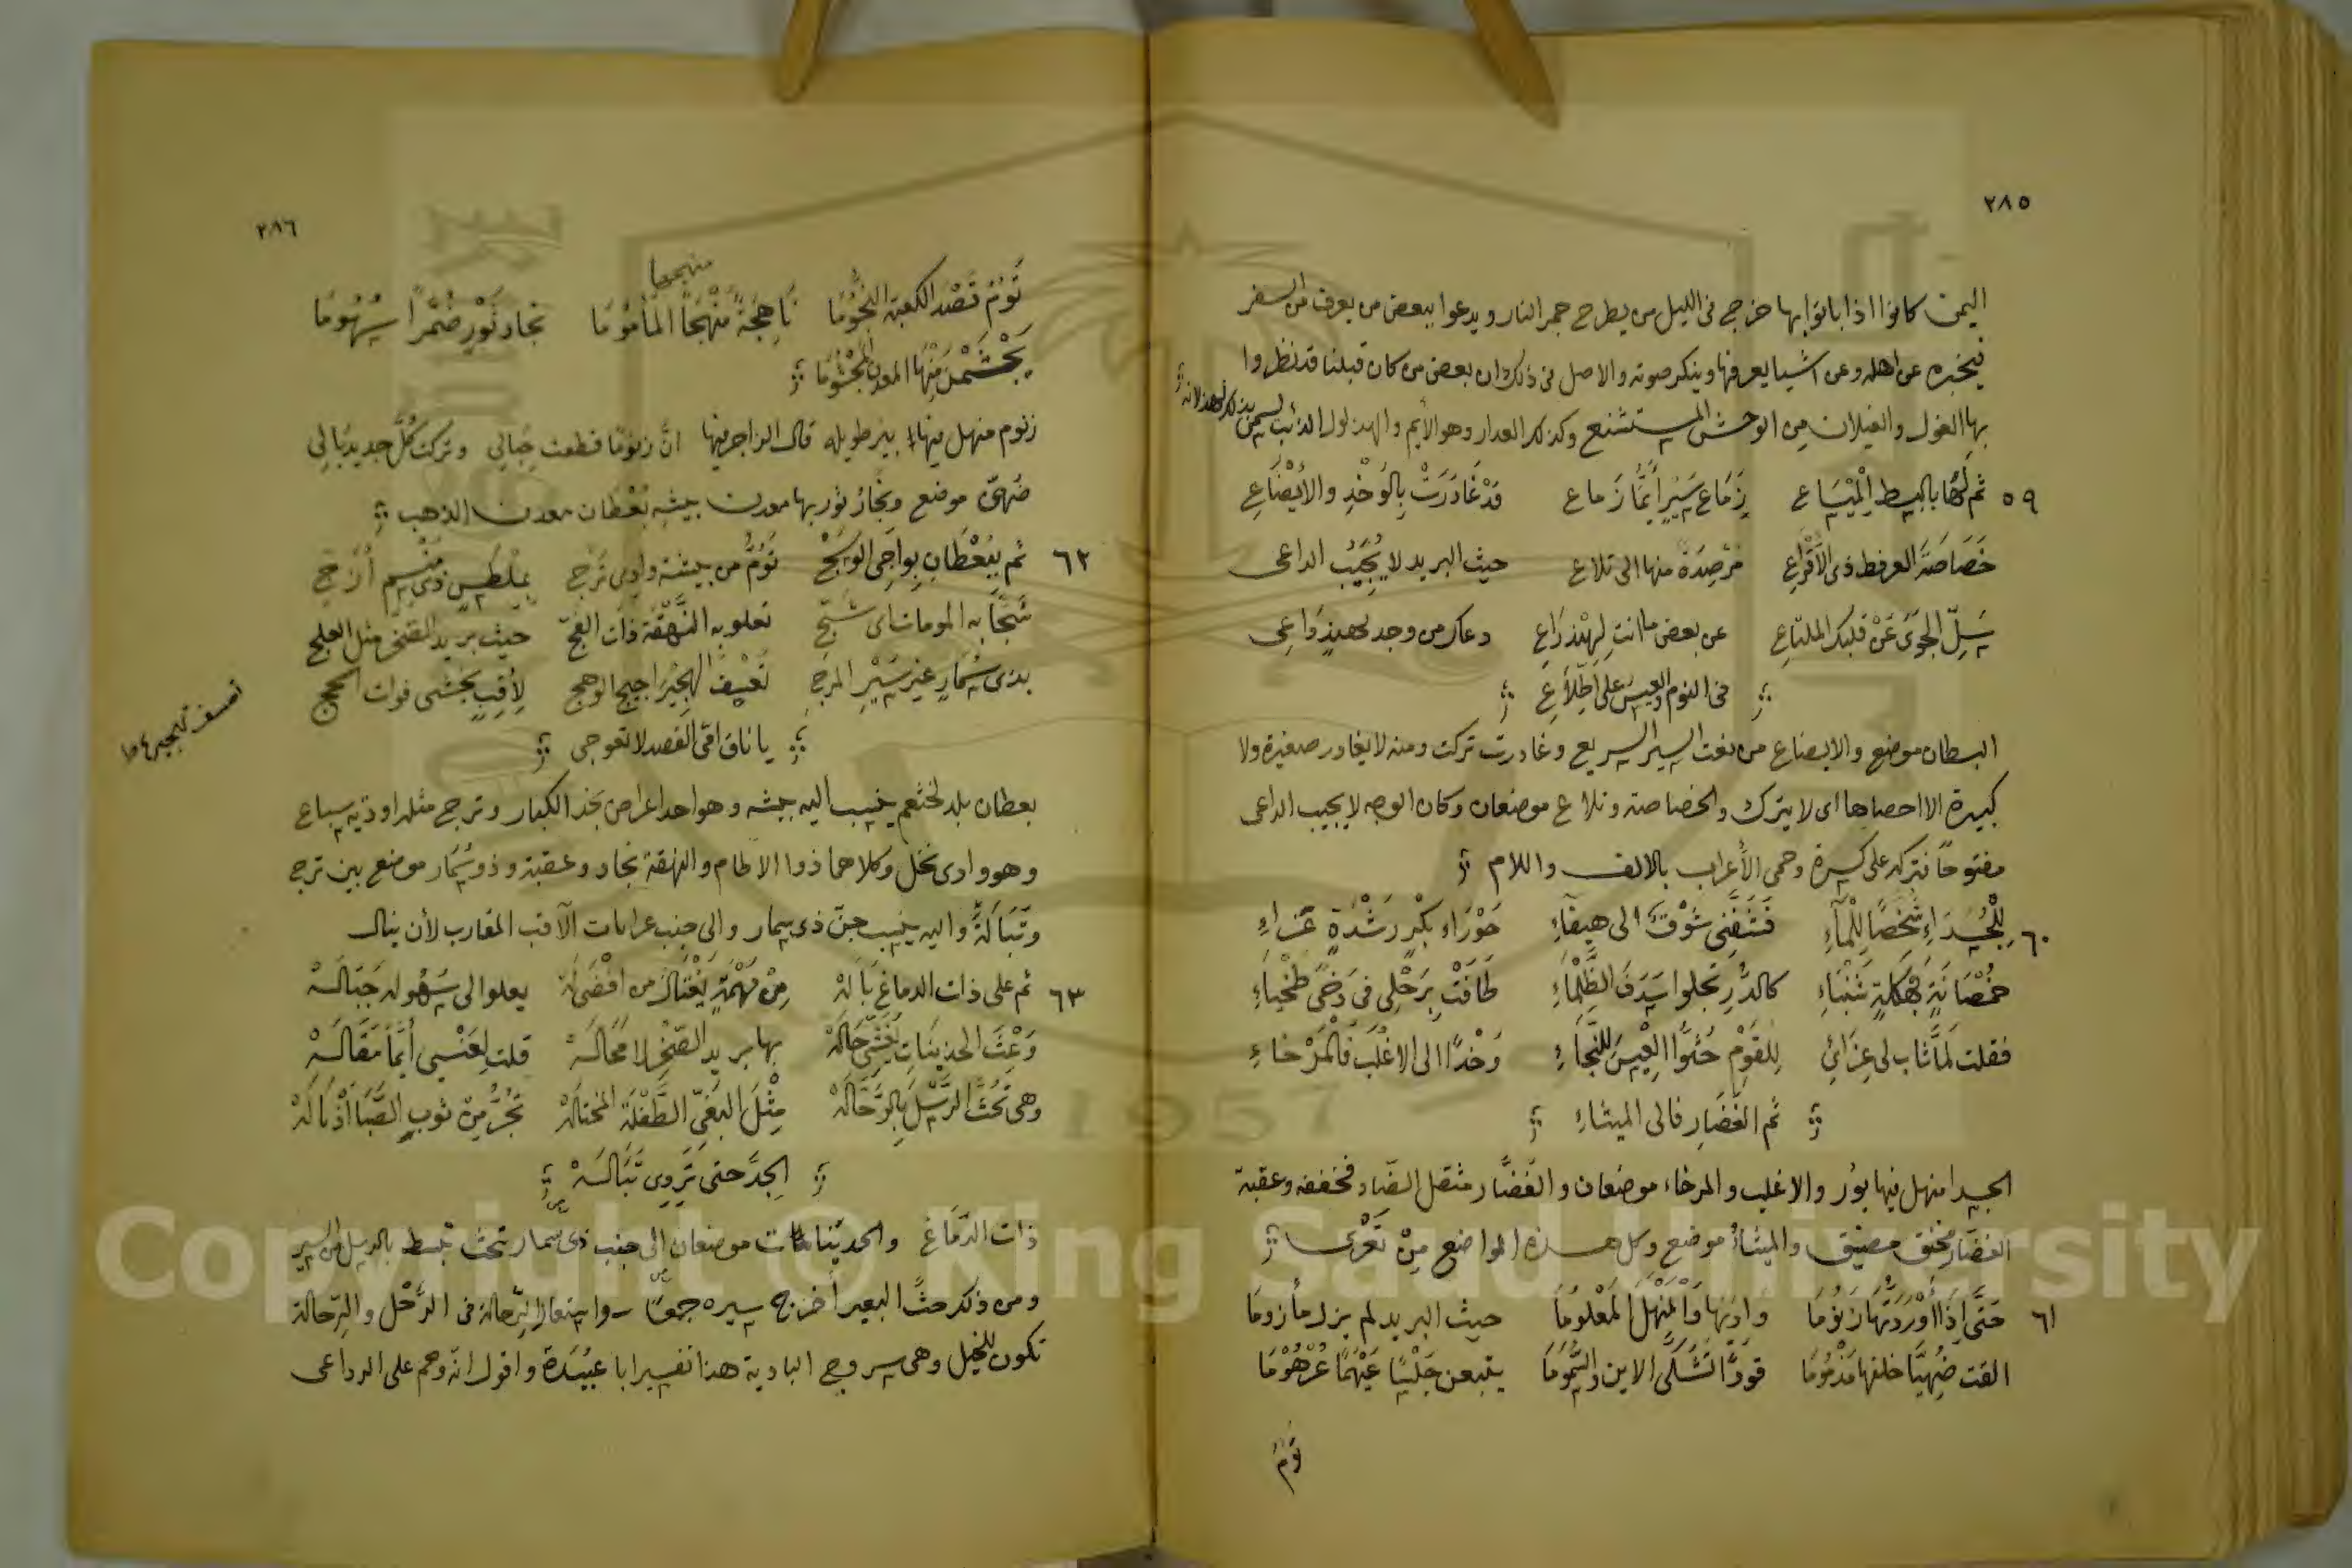 ٢٨٥
اليمن كانوا اذا باتوا بها خرج فى الليل من يطرح جمر النار ويدعوا ببعض من يعرف من السفر
فيخبره عن اهله وعن اشيا يعرفها وينكر صوته والاصل فى ذلك ان بعض من كان قبلنا قد نظروا
بها الغول والغيلان من الوحش المستشنع وكذلك العدار وهو الأيم والهذلول الذئب
٥٩ ثم لها بالبسط الميساع زماع سير أيما زماع قد غادرت بالوخد والايضاع
خصاصة العرفط ذى الأقراع مرصدة منها الى تلاع حيث البريد لا يجيب الداعى
سل الجوى عن قلبك الملتاع عن بعض ما انت لهند راع دعاك من وجد لهند داعى
فى النوم والعيس على اطلاع
البسطان موضع والايضاع من نعت السير السريع وغادرت تركت ومنه لا يغادر صغيرة ولا
كبيرة الا احصاها اى لا يترك والخصاصة وتلاع موضعان وكان الوجه لا يجيب الداعى
مفتوحًا فتركه على كسرة وحمى الأعراب بالالف واللام
٦٠ للجسداء شخصا للماء فشفنى شوق الى هيفاء حوراء بكر رشدة غراء
خمصانة بهكلة شنباء كالدر تجلوا سدف الظلماء طافت برحلى فى دجى طخياء
فقلت لما ثاب لى عزائى للقوم حثوا العيس للنجاء وخدًا الى الاغلب فالمرخاء
ثم الغضار فالى الميثاء
الجسدا منهل فيها بؤر والاغلب والمرخاء موضعان والغضّار مثقل الضاد فخففه وعقبة
الغضار مختق مضيق والميثاء موضع وكل هذه المواضع من
٦١ حتى اذا أوردتها زنوما واردتها والمنهل المعلوما حيث البريد لم يزل مأزوما
القت ضهيا خلفها مذموما قودًا تشكى الاين والسموما يتبعن جلسا عيهما عرهوما
تؤم
٢٨٦
منهجها
تؤم قصد الكعبة النجوما ناهجة منهجا المأموما نجاد نور ضمرا سهوما
يجشمن منها المعدن المجشوما
زنوم منهل فيها بير طويله قال الراجز فيها انّ زنومًا قطعت حبالى وتركت كل جديد بالى
ضهىّ موضع ونجاد نور بها معدن بيشه بعطان معدن الذهب
٦٢ ثم ببعطان بواجى الوسج تؤم من بيشة وادى ترج بملطس ذى منسم أزج
شجا به المومات اى شج تعلو به النهقة ذات الفج حيث بريد الصخر مثل العلج
بذى سمار غير سير المرج تعسف الهجير اجيج الوهج لأقب يخشى فوات الحج
تعسف تهجيرها
يا ناق امّى القصد لا تعوجى
بعطان بلد لخثعم ينسب اليه بيشه وهو احد اعراض نجد الكبار وترج مثلها وذيه سباع
وهو وادى نخل وكلاهما ذوا الاطام والنهقة نجاد وعقبة وذو سمار موضع بين ترج
وتبالة واليه ينسب جنّ ذى سمار والى جنب الآقب المقارب لأن ينال
٦٣ ثم على ذات الدماغ باله من مهمة يغتال من افضى له يعلوا لى سهوله جباله
وعث الحديبات يغشى حاله بها بريد الصخر لا محاله قلت لعنسى أيما مقاله
وهى تحث الرسل بالرحاله مثل البغى الطفلة المختاله تجر من ثوب الصبا أذياله
الجد حتى تروى تباله
ذات الدماغ والحديبات موضعان الى جنب ذى سمار تحث تبسط بالرسل من السير
ومن ذكر حثّ البعير أخرج سيره جمعًا الرحالة فى الرَّحْل والرحالة
تكون للخيل وهى سروج البادية هذا تفسير ابا عبيدة واقول انّه وهم على الرداعى